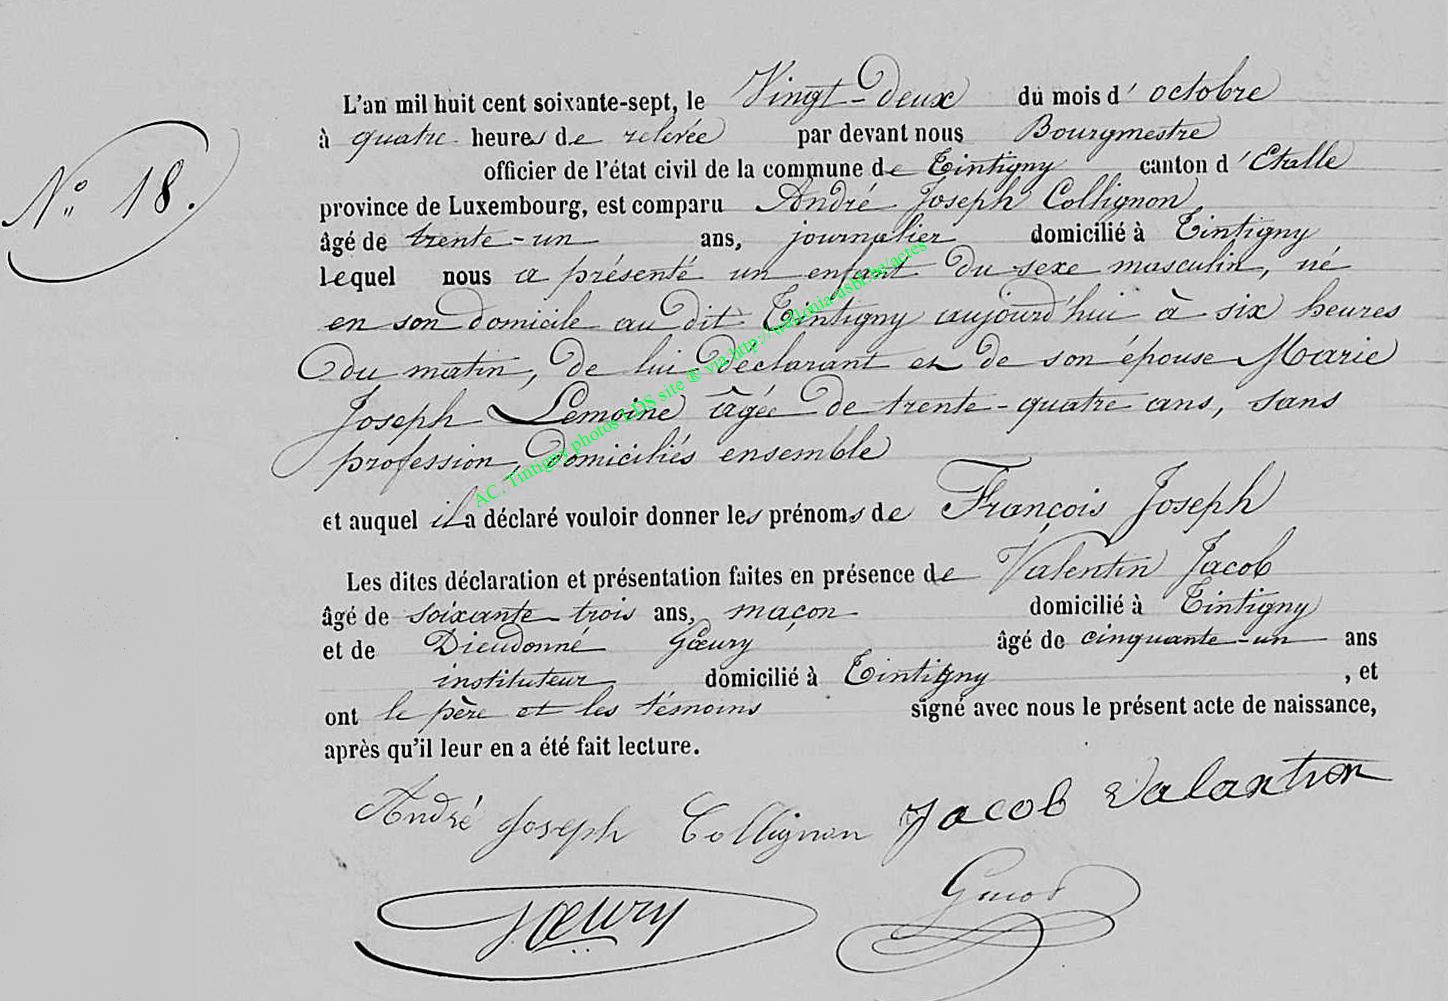 N° 18.
L'an mil huit cent soixante-sept, le Vingt-deux du mois d'octobre
à quatre heures de relevée par devant nous Bourgmestre
officier de l'état civil de la commune de Tintigny canton d'Etalle
province de Luxembourg, est comparu André Joseph Collignon,
âgé de trente-un ans, journalier domicilié à Tintigny
lequel nous a présenté un enfant du sexe masculin, né
en son domicile au dit Tintigny aujourd'hui à six heures
du matin, de lui déclarant et de son épouse Marie
Joseph Lemoine âgée de trente-quatre ans, sans
profession, domiciliés ensemble
et auquel il a déclaré vouloir donner les prénoms de François Joseph
Les dites déclaration et présentation faites en présence de Valentin Jacob
âgé de soixante trois ans, maçon domicilié à Tintigny
et de Dieudonné Gœury âgé de cinquante-un ans
instituteur domicilié à Tintigny , et
ont le père et les témoins signé avec nous le présent acte de naissance,
après qu'il leur en a été fait lecture.
André Joseph Collignon Jacob Valantin
Gœury
AC. Tintigny photos LDS site ® via http://wallonia-asbl.be/actes